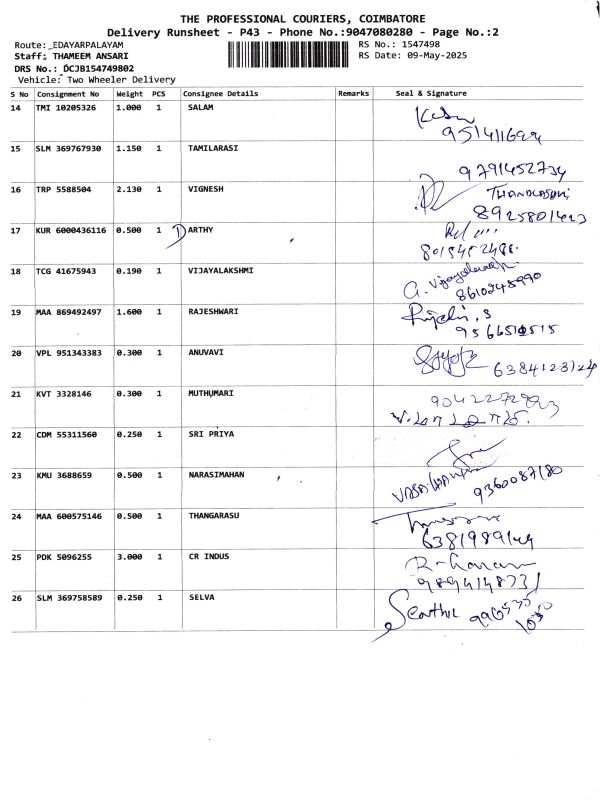 THE PROFESSIONAL COURIERS, COIMBATORE
Delivery Runsheet - P43 - Phone No.:9047080280 - Page No.:2
Route: EDAYARPALAYAM RS No.: 1547498
Staff: THAMEEM ANSARI RS Date: 09-May-2025
DRS No.: DCJB154749802
Vehicle: Two Wheeler Delivery
S No Consignment No Weight PCS Consignee Details Remarks Seal & Signature
14 TMI 10205326 1.000 1 SALAM
15 SLM 369767930 1.150 1 TAMILARASI
9791452734
16 TRP 5588504 2.130 1 VIGNESH
8925801423
17 KUR 6000436116 0.500 1 DARTHY
18 TCG 41675943 0.190 1 VIJAYALAKSHMI
G. Vijayalakshmi
8610245990
19 MAA 869492497 1.600 1 RAJESHWARI
20 VPL 951343383 0.300 1 ANUVAVI
21 KVT 3328146 0.300 1 MUTHUMARI
22 CDM 55311560 0.250 1 SRI PRIYA
23 KMU 3688659 0.500 1 NARASIMAHAN
9360087180
24 MAA 600575146 0.500 1 THANGARASU
25 PDK 5096255 3.000 1 CR INDUS
9894148731
26 SLM 369758589 0.250 1 SELVA
Senthil